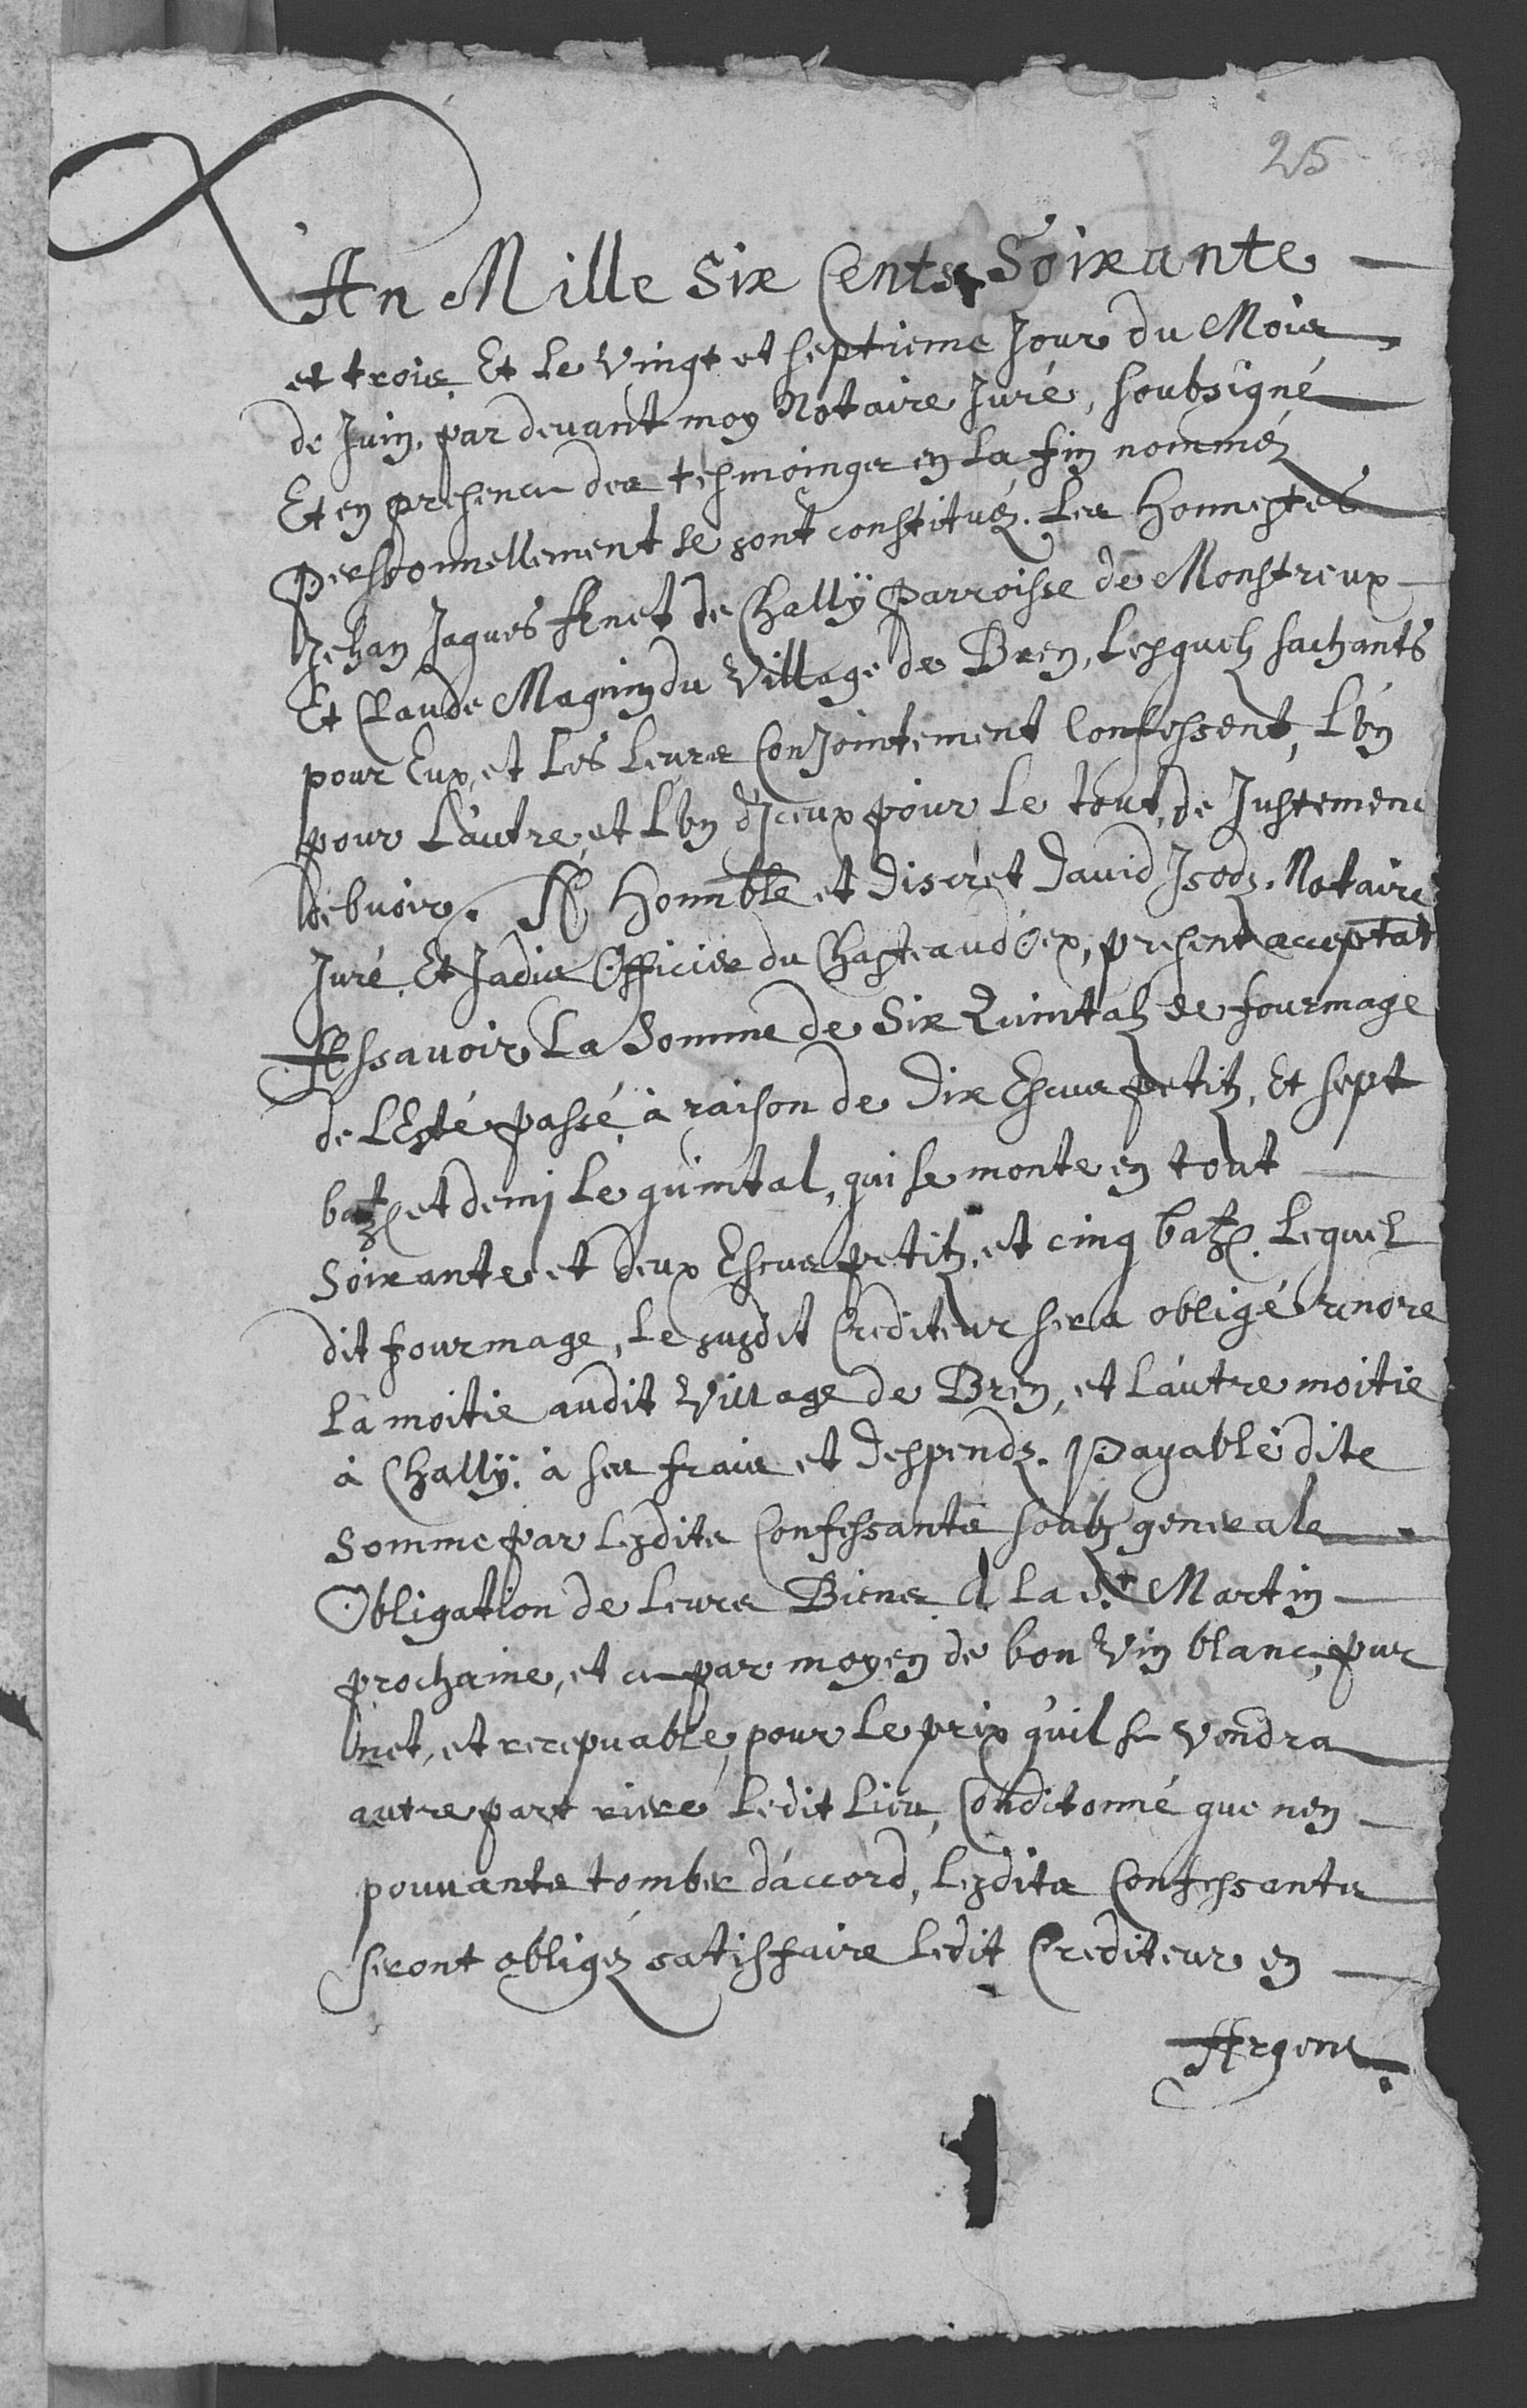 25
L'An Mille Six Cents Soixante
et trois Et le vingt et septieme Jour du Mois
de Juin, par devant moy Notaire Juré, soubsigné
Et en presence des tesmoings en la fin nomméz
Personnellement se sont constituéz. Les Honnestes
Jehan Jaques Anet de Chally Parroisse de Monstreux
Et Claude Magnin du Village de Bren, Lesquelz sachants
pour Eux, et les leurs Conjointement Confessent, L'un
pour L'autre, et L'un d'Iceux pour Le tout, de Justement
debvoir. A Honnble et discret David Isoz. Notaire
Juré, Et Jadis Officier du Chasteaud'Oex, present acceptat
Assavoir La Somme de Six Quintalz de fourmage
de L'Esté passé à raison de Dix Escus petitz, Et sept
batz et demj Le quintal, qui se monte en tout
Soixante et deux Escus petitz, et cinq batz. Lequel
dit fourmage, Le susdit Crediteur sera obligé rendre
La moitie audit Village de Bren, et L'autre moitie
à Chally. à ses frais et despendz. Payable dite
Somme par Lesdits Confessants soubz generale
Obligation de Leurs Biens A La St Martin
prochaine, et ce par moyen de bon Vin blanc, pur
net, et recepvable, pour Le prix qu'il se vendra
autre part riere Ledit Lieu, Conditonné que nen
pouvants tomber d'accord, Lesdits Confessants
seront obligéz satisfaire Ledit Crediteur en
Argent